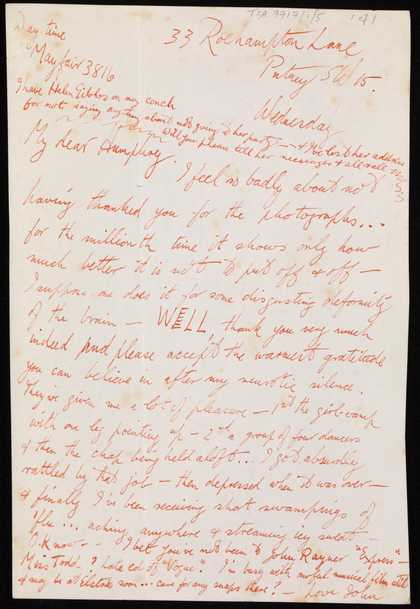 TGA 9717/1/5
141
33 Roehampton Lane
Putney SW 15.
Day time
Mayfair 3816
Wednesday
I have Helen on my conch
for not saying anything about not going to her party — & I've lost her address
Will you please tell her
My dear Humphrey.
I feel so badly about not
having thanked you for the photographs...
for the millionth time it shows only how
much better it is not to put off & off —
I suppose one does it for some disgusting deformity
of the brain — WELL, thank you very much
indeed and please accept the warmest gratitude
you can believe in after my neurotic silence.
They've given me a lot of pleasure — 1st the girl
with one leg pointing up — 2nd a group of four dancers
& then the chap being held aloft... I got absurdly
rattled by that job — then depressed when it was over —
& finally I've been receiving short swampings of
'flu... aching anywhere & streaming icy sweat —
O.K. now — I bet you've not been to John Rayner "Express" —
Miss Todd? Lated of "Vogue". I'm busy with awful musical film still
& may be at Elstree soon... care for any snaps there? — love John